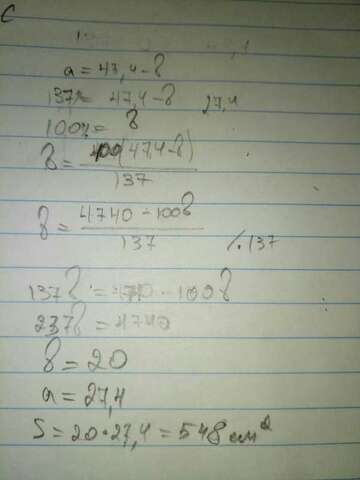 C
a = 47,4 - b
137% = 47,4 - b 27,4
100% = b
b = 100(47,4 - b) / 137
b = 4740 - 100b / 137 /·137
137b = 4740 - 100b
237b = 4740
b = 20
a = 27,4
S = 20·27,4 = 548 cm²